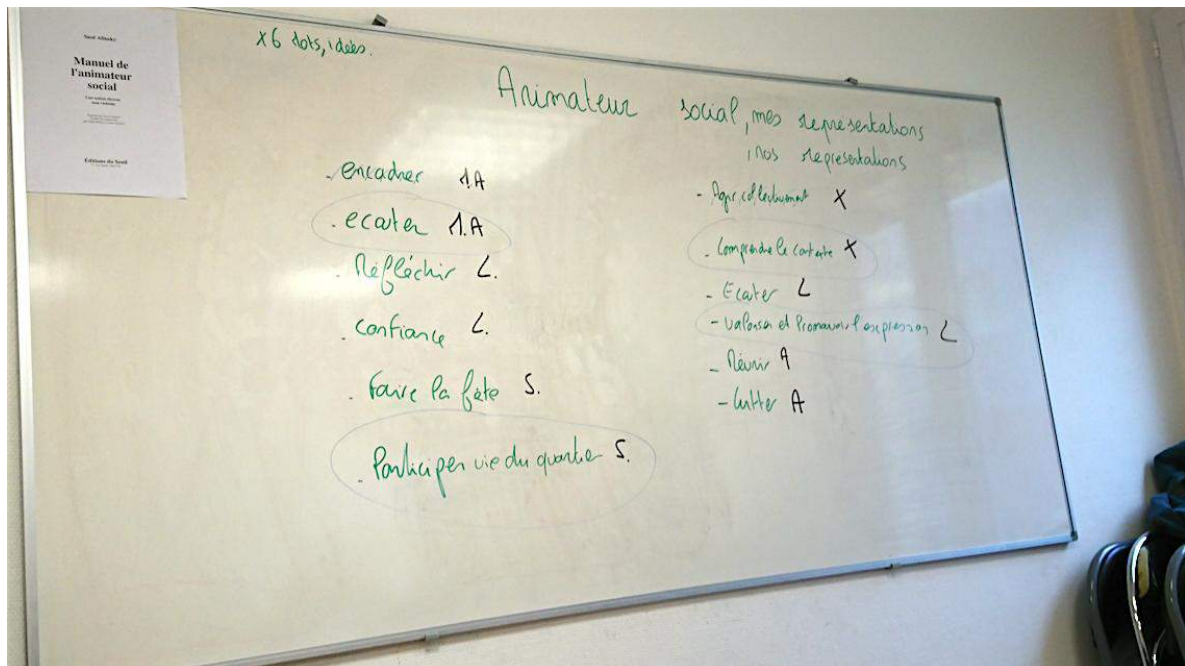 Saul Alinsky
Manuel de
l'animateur
social
Une action directe
non violente
Éditions du Seuil
x6 dots, idées.
Animateur social, mes représentations
, nos représentations
- encadrer 1.A
- ecouter 1.A
- Réfléchir L.
- confiance L.
- Faire la fête S.
- Participer vie du quartier S.
- Agir collectivement X
- Comprendre le contexte X
- Ecouter L
- valoriser et Promouvoir l'expression L
- Réunir A
- lutter A